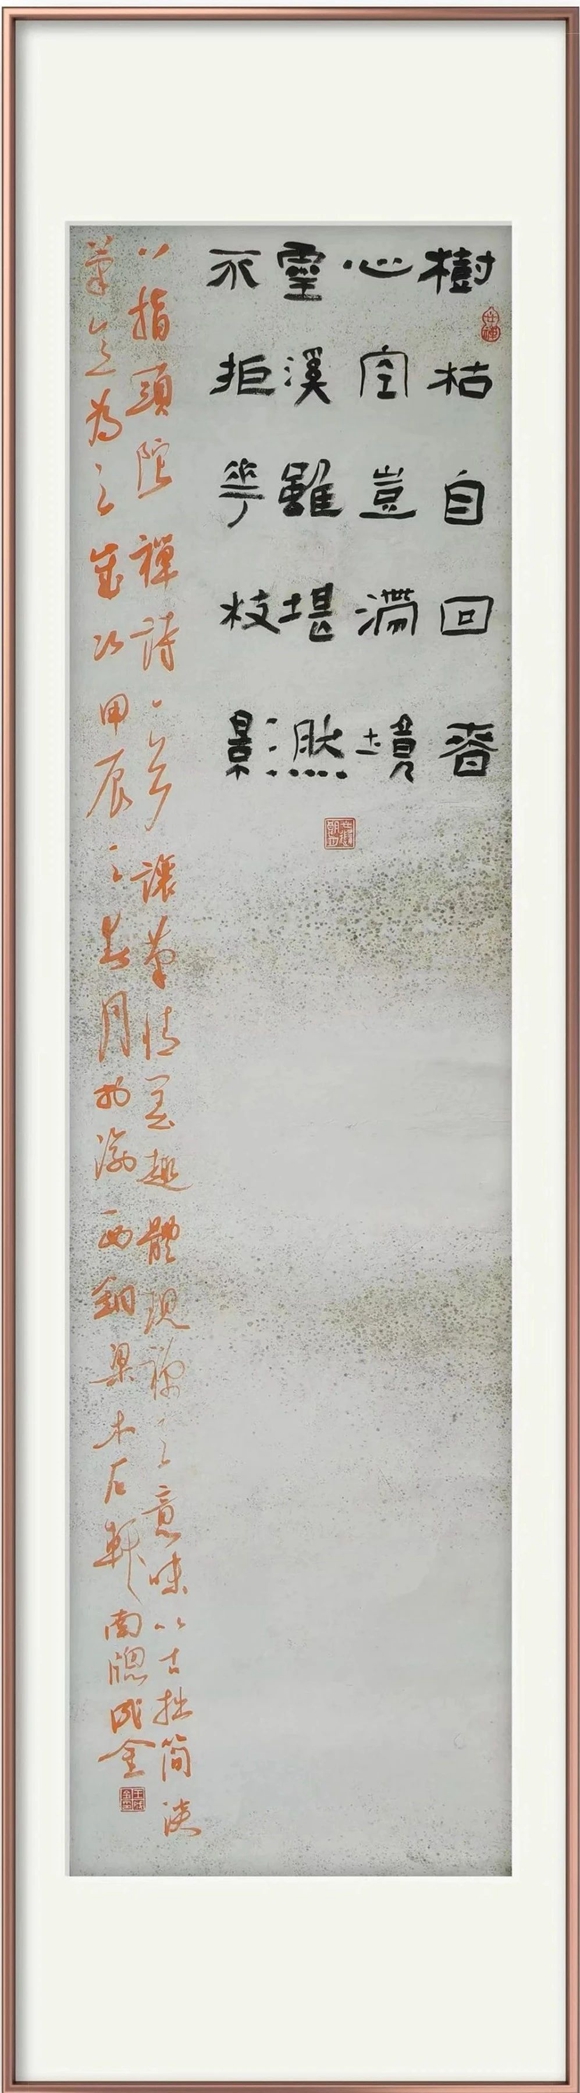 樹枯自回春
心空豈滯境
靈溪雖堪然
不拒華枝影
八指頭陀禪詩一首讓筆情墨趣體現禪之意味以古拙簡淡
筆意為之歲次甲辰之春月於渝西銅梁木石軒南牕成金